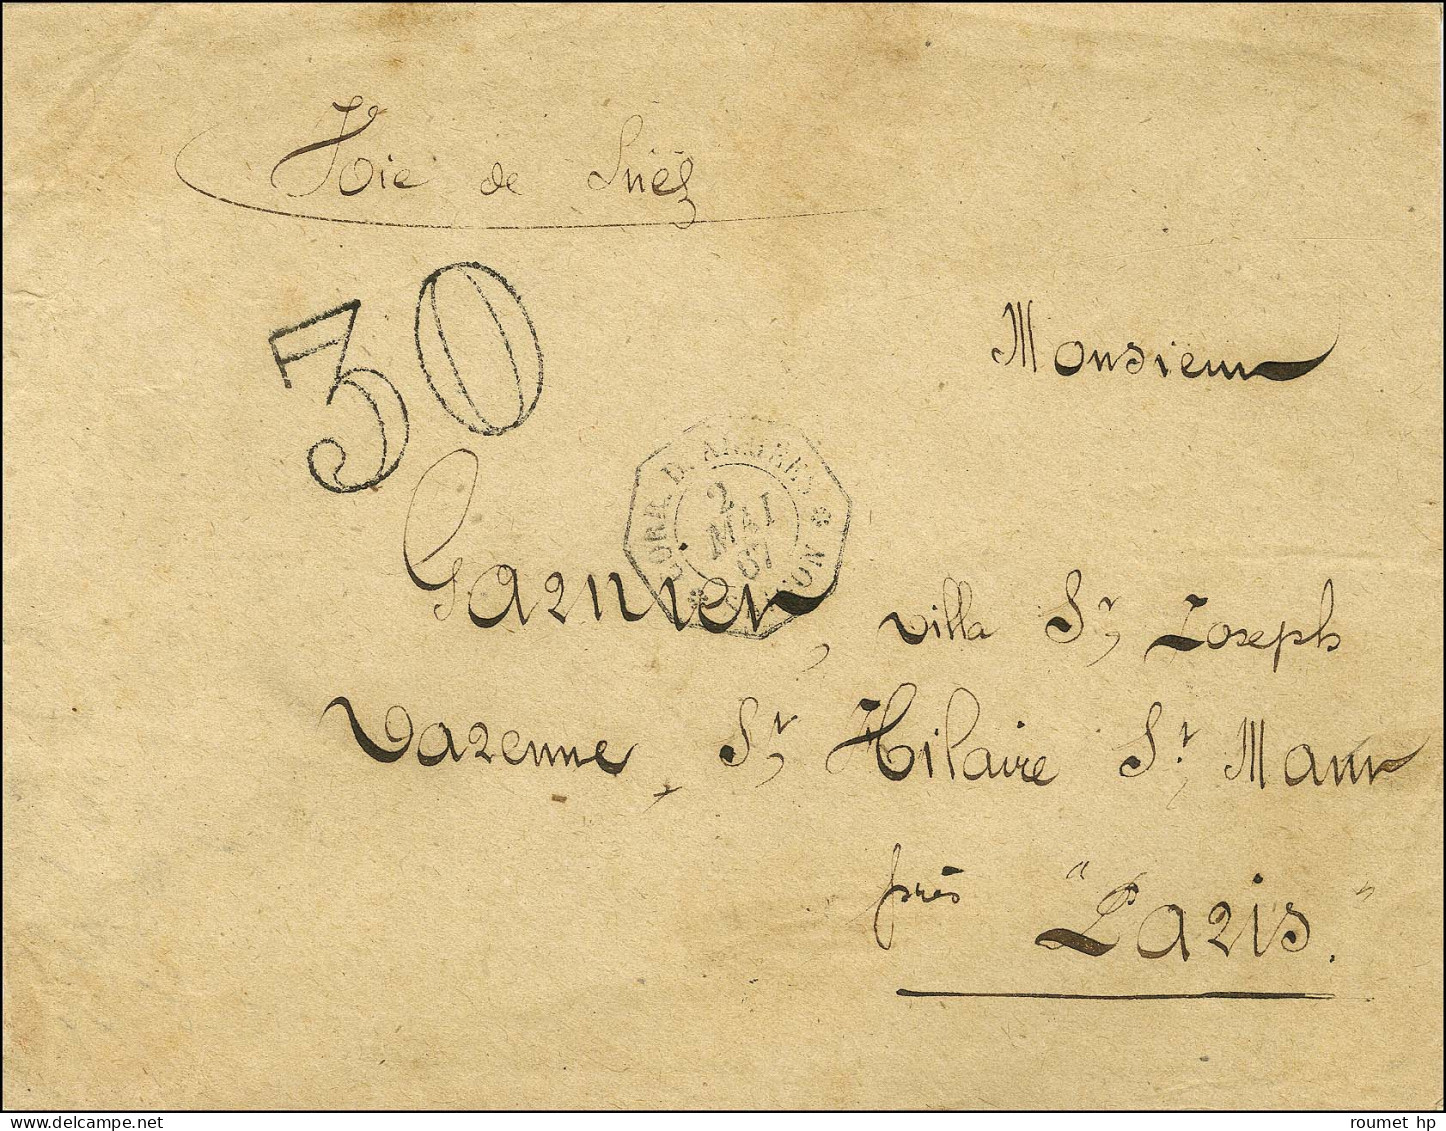 Voie de Suez
30
Monsieur
CORR. D. ARMÉES
2
MAI
67
Garnier, villa St Joseph
Varenne, St Hilaire St Maur
près "Paris."
roumet hp